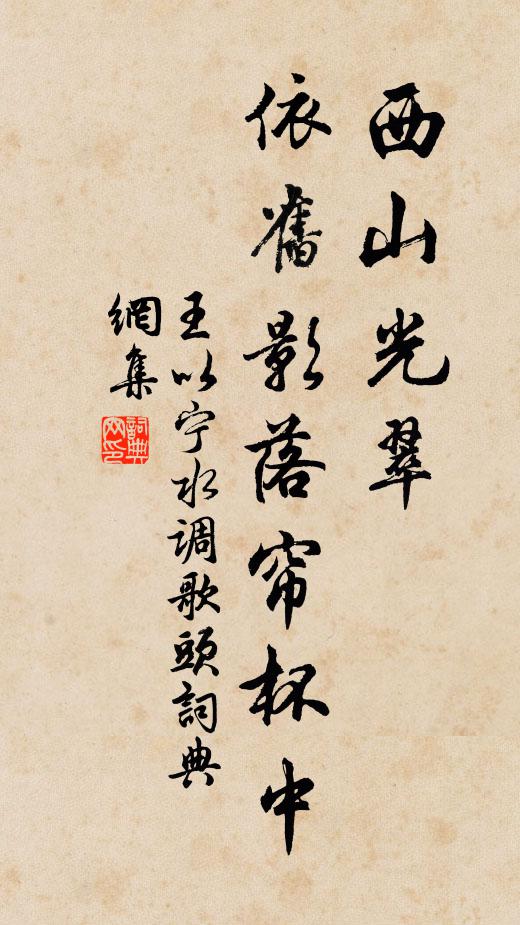 西山光翠
依舊影落帘杯中
王以宁水调歌頭詞典
網集
詞典網印